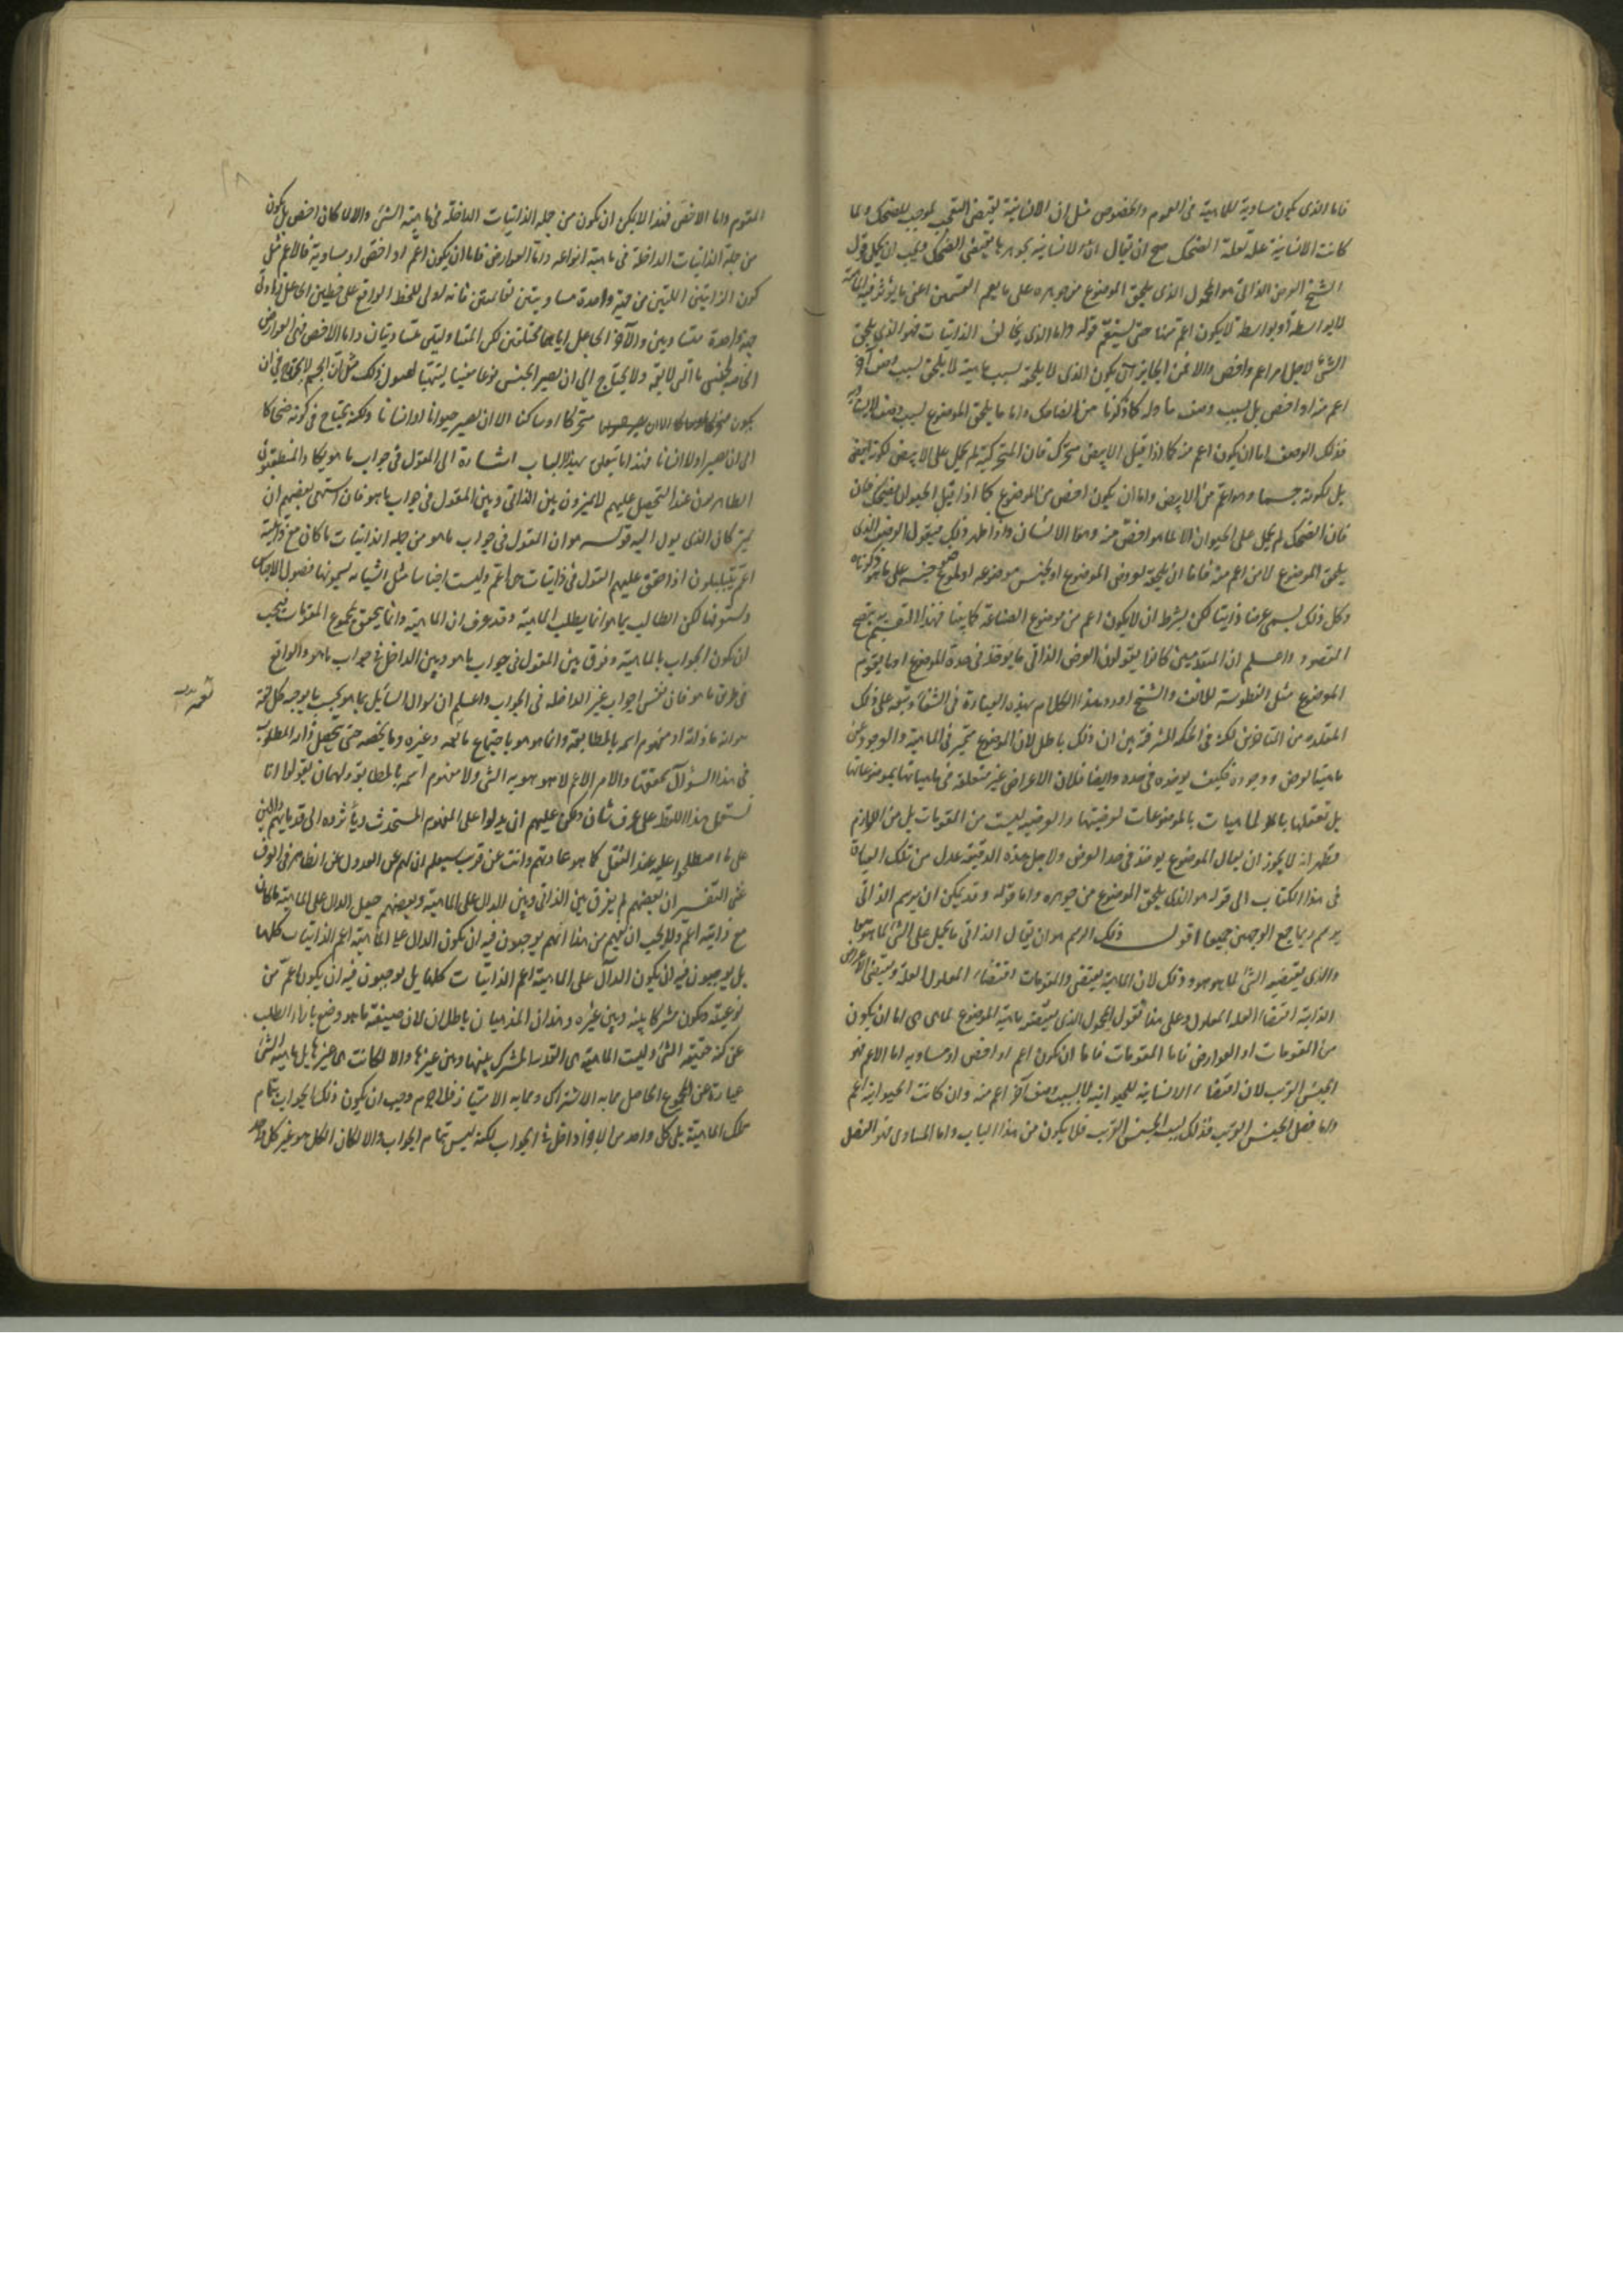 فاما الذى يكون مساوية للماهية فى العموم والخصوص مثل ان الانسانية تقتضى التعجب الموجب للضحك ولما
كانت الانسانية علة لعلة الضحك صح ان يقال ان الانسانية بجوهرها يقتضى الضحك ويجب ان يحمل قول
الشيخ العرض الذاتى هو المحمول الذى يلحق الموضوع من جوهره على ما يعم القسمين اعنى ما يؤثر فيه الماهية
بلا واسطة او بواسطة لا يكون اعم منها حتى يستقيم قوله واما الذى يخالف الذاتيات فهو الذى يلحق
الشئ لاجل امر اعم واخص والاعم الخارجى ان يكون الذى لا يلحقه بسبب ماهيته لا يلحق بسبب وصف آخر
اعم منه او اخص بل بسبب وصف مساو له كما ذكرنا من الضاحك واما ما يلحق الموضوع بسبب وصف لا يساويه
فذلك الوصف اما ان يكون اعم منه كما اذا قيل الابيض متحرك فان المتحركية لم يحمل على الابيض لكونه ابيض
بل لكونه جسما وهو اعم من الابيض واما ان يكون اخص من الموضوع كما اذا قيل الحيوان يضحك فان
فان الضحك لم يحمل على الحيوان الا لما هو اخص منه وهو الانسان واذا ظهر ذلك فيقول الوصف الذى
يلحق الموضوع لامر اعم منه فاما ان يلحقه لعروض الموضوع او لجنس موضوعه او لموضوع جنسه على ما هو ذكرناه
وكل ذلك يسمى عرضا ذاتيا لكن بشرط ان لا يكون اعم من موضوع الصناعة كما بينا فهذا التقسيم به يتضح
المقصود واعلم ان المتقدمين كانوا يقولون العرض الذاتى ما يوخذ فى حده الموضوع او ما يقوم
الموضوع مثل الفطوسة للانف والشيخ اورد هذا الكلام بهذه العبارة فى الشفاء وتبعه على ذلك
المقلده من المتاخرين لكنه فى الحكمة المشرقية بين ان ذلك باطل لان الموضوع متميز فى الماهية والوجود عن
ماهية العرض ووجوده فكيف يوخذ فى حده وايضا فلان الاعراض غير متعلقة فى ماهياتها بموضوعاتها
بل تعلقها بالماهيات بالموضوعات لعرضيتها والعرضية ليست من المقومات بل من اللوازم
فظهر انه لا يجوز ان يقال الموضوع يوخذ فى حد العرض ولاجل هذه الدقيقة عدل من تلك العبارة
فى هذا الكتاب الى قوله هو الذى يلحق الموضوع من جوهره واما قوله وقد يمكن ان يرسم الذاتى
برسم ربما جمع الوجهين جميعا اقول ذلك الرسم هو ان يقال الذاتى ما يحمل على الشئ لما هو هو
والذى يقتضيه الشئ لما هو هو وذلك لان الماهية يقتضى المقومات اقتضاء المعلول العلة ويقتضى الاعراض
الذاتية اقتضاء العلة المعلول وعلى هذا نقول المحمول الذى يقتضيه ماهية الموضوع لما هى هى اما ان يكون
من المقومات او العوارض فاما المقومات فاما ان يكون اعم او اخص او مساويه اما الاعم فهو
الجنس القريب لان اقتضاء الانسانية للحيوانية لا بسبب وصف آخر اعم منه وان كانت الحيوانية اعم
واما فصل الجنس القريب فذلك بسبب الجنس القريب فلا يكون من هذا الباب واما المساوى فهو الفصل
المقوم واما الاخص فهذا لا يمكن ان يكون من جملة الذاتيات الداخلة فى ماهية الشئ والا لما كان اخص بل يكون
من جملة الذاتيات الداخلة فى ماهية انواعه واما العوارض فاما ان يكون اعم او اخص او مساوية فالاعم مثل
كون الزاويتين اللتين من جهة واحدة مساويتين لقائمتين فانه اولى للخط الواقع على خطين
جهة واحدة متساويين والآخر الحاصل اياهما مختلفتين لكن المتبادلتين متساويتان واما الاخص فهى العوارض
الخاصة بجنس ما التى لا تعمه ولا يحتاج الى ان يصير الجنس نوعا معينا ليتهيا لقبول ذلك مثل ان الجسم لا يحتاج فى ان
يكون متحركا او ساكنا الا ان يصير حيوانا او انسانا ولكنه يحتاج فى كونه ضحاكا
الى ان يصير اولا انسانا فهذا ما يتعلق بهذا الباب اشارة الى المقول فى جواب ما هو يكاد المنطقيون
الظاهريون عند التحصيل عليهم لا يميزون بين الذاتى وبين المقول فى جواب ما هو فان اشتهى بعضهم ان
يميز كان الذى يول اليه قوله هو ان المقول فى جواب ما هو من جملة الذاتيات ما كان مع ذاتيته
اعم ثم يتبلبلون اذا حقق عليهم القول فى ذاتيات هى اعم وليست اجناسا مثل اشياء يسمونها فصول الاجناس
وستعرفها لكن الطالب بما هو انما يطلب الماهية وقد عرف ان الماهية وانما يتحقق بمجموع المقومات فيجب
ان يكون الجواب بالماهية وفرق بين المقول فى جواب ما هو وبين الداخل فى جواب ما هو والواقع
فى طريق ما هو فان نفس الجواب غير الداخل فى الجواب واعلم ان سوال السايل بما هو بحسب ما يوجبه كل لغة
هو انه ما ذاته او مفهوم اسمه بالمطابقة وانما هو هو باجتماع ما يعمه وغيره وما يخصه حتى يتحصل ذاته المطلوب
فى هذا السؤال تحققها والامر الاعم لا هو هوية الشئ ولا مفهوم اسمه بالمطابقة ولهم ان يقولوا انا
نستعمل هذا اللفظ على عرف ثان ولكن عليهم ان يدلوا على المفهوم المستحدث وياثروه الى قدمائهم دالين
على ما اصطلحوا عليه عند النقل كما هو عادتهم وانت عن قريب ستعلم ان لهم عن العدول عن الظاهر فى العرف
غنى التفسير ان بعضهم لم يفرق بين الذاتى وبين الدال على الماهية وبعضهم جعل الدال على الماهية ما كان
مع ذاتيته اعم ولا يجب ان يفهم من هذا انهم يوجبون فيه ان يكون الدال على الماهية اعم الذاتيات كلها
بل يوجبون فيه ان يكون الدال على الماهية اعم الذاتيات كلها بل يوجبون فيه ان يكون اعم من
نوعيته ويكون مشتركا بينه وبين غيره وهذان المذهبان باطلان لان صيغة ما هو وضع بازاء الطلب
عن كنه حقيقة الشئ وليست الماهية هى القدر المشترك بينها وبين غيرها والا لكانت هى غيرها بل ماهية الشئ
عبارة عن المجموع الحاصل مما به الاشتراك ومما به الامتياز فلا جرم وجب ان يكون ذلك الجواب بتمام
تلك الماهية بلى كل واحد من الاجزاء داخل فى الجواب لكنه ليس تمام الجواب والا لكان الكل هو غير كل واحد